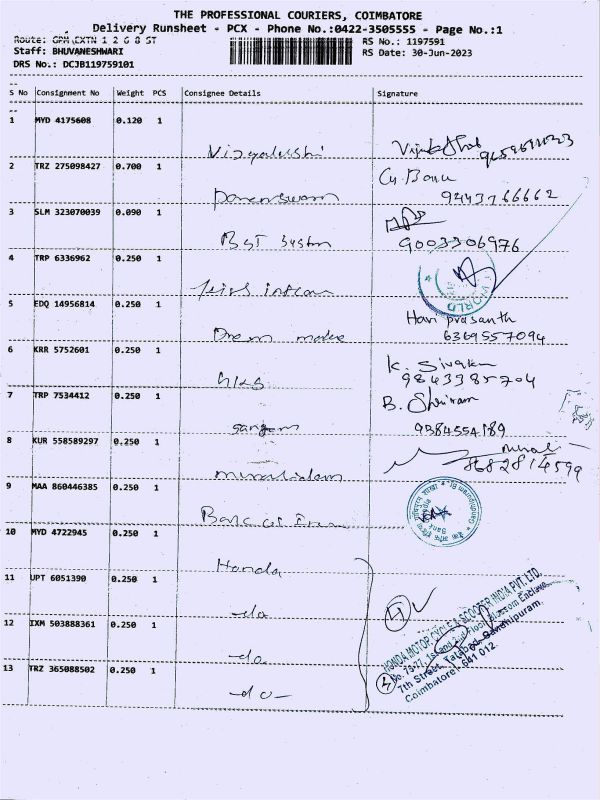 THE PROFESSIONAL COURIERS, COIMBATORE
Delivery Runsheet - PCX - Phone No.:0422-3505555 - Page No.:1
Route: GPM CXTN 1 2 6 8 ST
RS No.: 1197591
Staff: BHUVANESHWARI
RS Date: 30-Jun-2023
DRS No.: DCJB119759101
S No Consignment No Weight PCS Consignee Details Signature
1 MYD 4175608 0.120 1
2 TRZ 275098427 0.700 1
Cg. Banu
9443766662
3 SLM 323070039 0.090 1
BST System
9003306976
4 TRP 6336962 0.250 1
WORLD
5 EDQ 14956814 0.250 1
Hari prasanth
Dream
6369557094
6 KRR 5752601 0.250 1
K. Sivaku
9843385704
7 TRP 7534412 0.250 1
B. Shriram
sangam
9384554189
8 KUR 558589297 0.250 1
8682814599
9 MAA 860446385 0.250 1
Bank of
10 MYD 4722945 0.250 1
Honda
11 UPT 6051390 0.250 1
-do
12 IXM 503888361 0.250 1
-do
13 TRZ 365088502 0.250 1
-do-
4
HONDA MOTOR CYCLE & SCOOTER INDIA PVT. LTD.
No. 73-77, 1st and 2nd Floor, Blossom Enclave,
7th Street, Tatabad, Gandhipuram,
Coimbatore - 641 012.